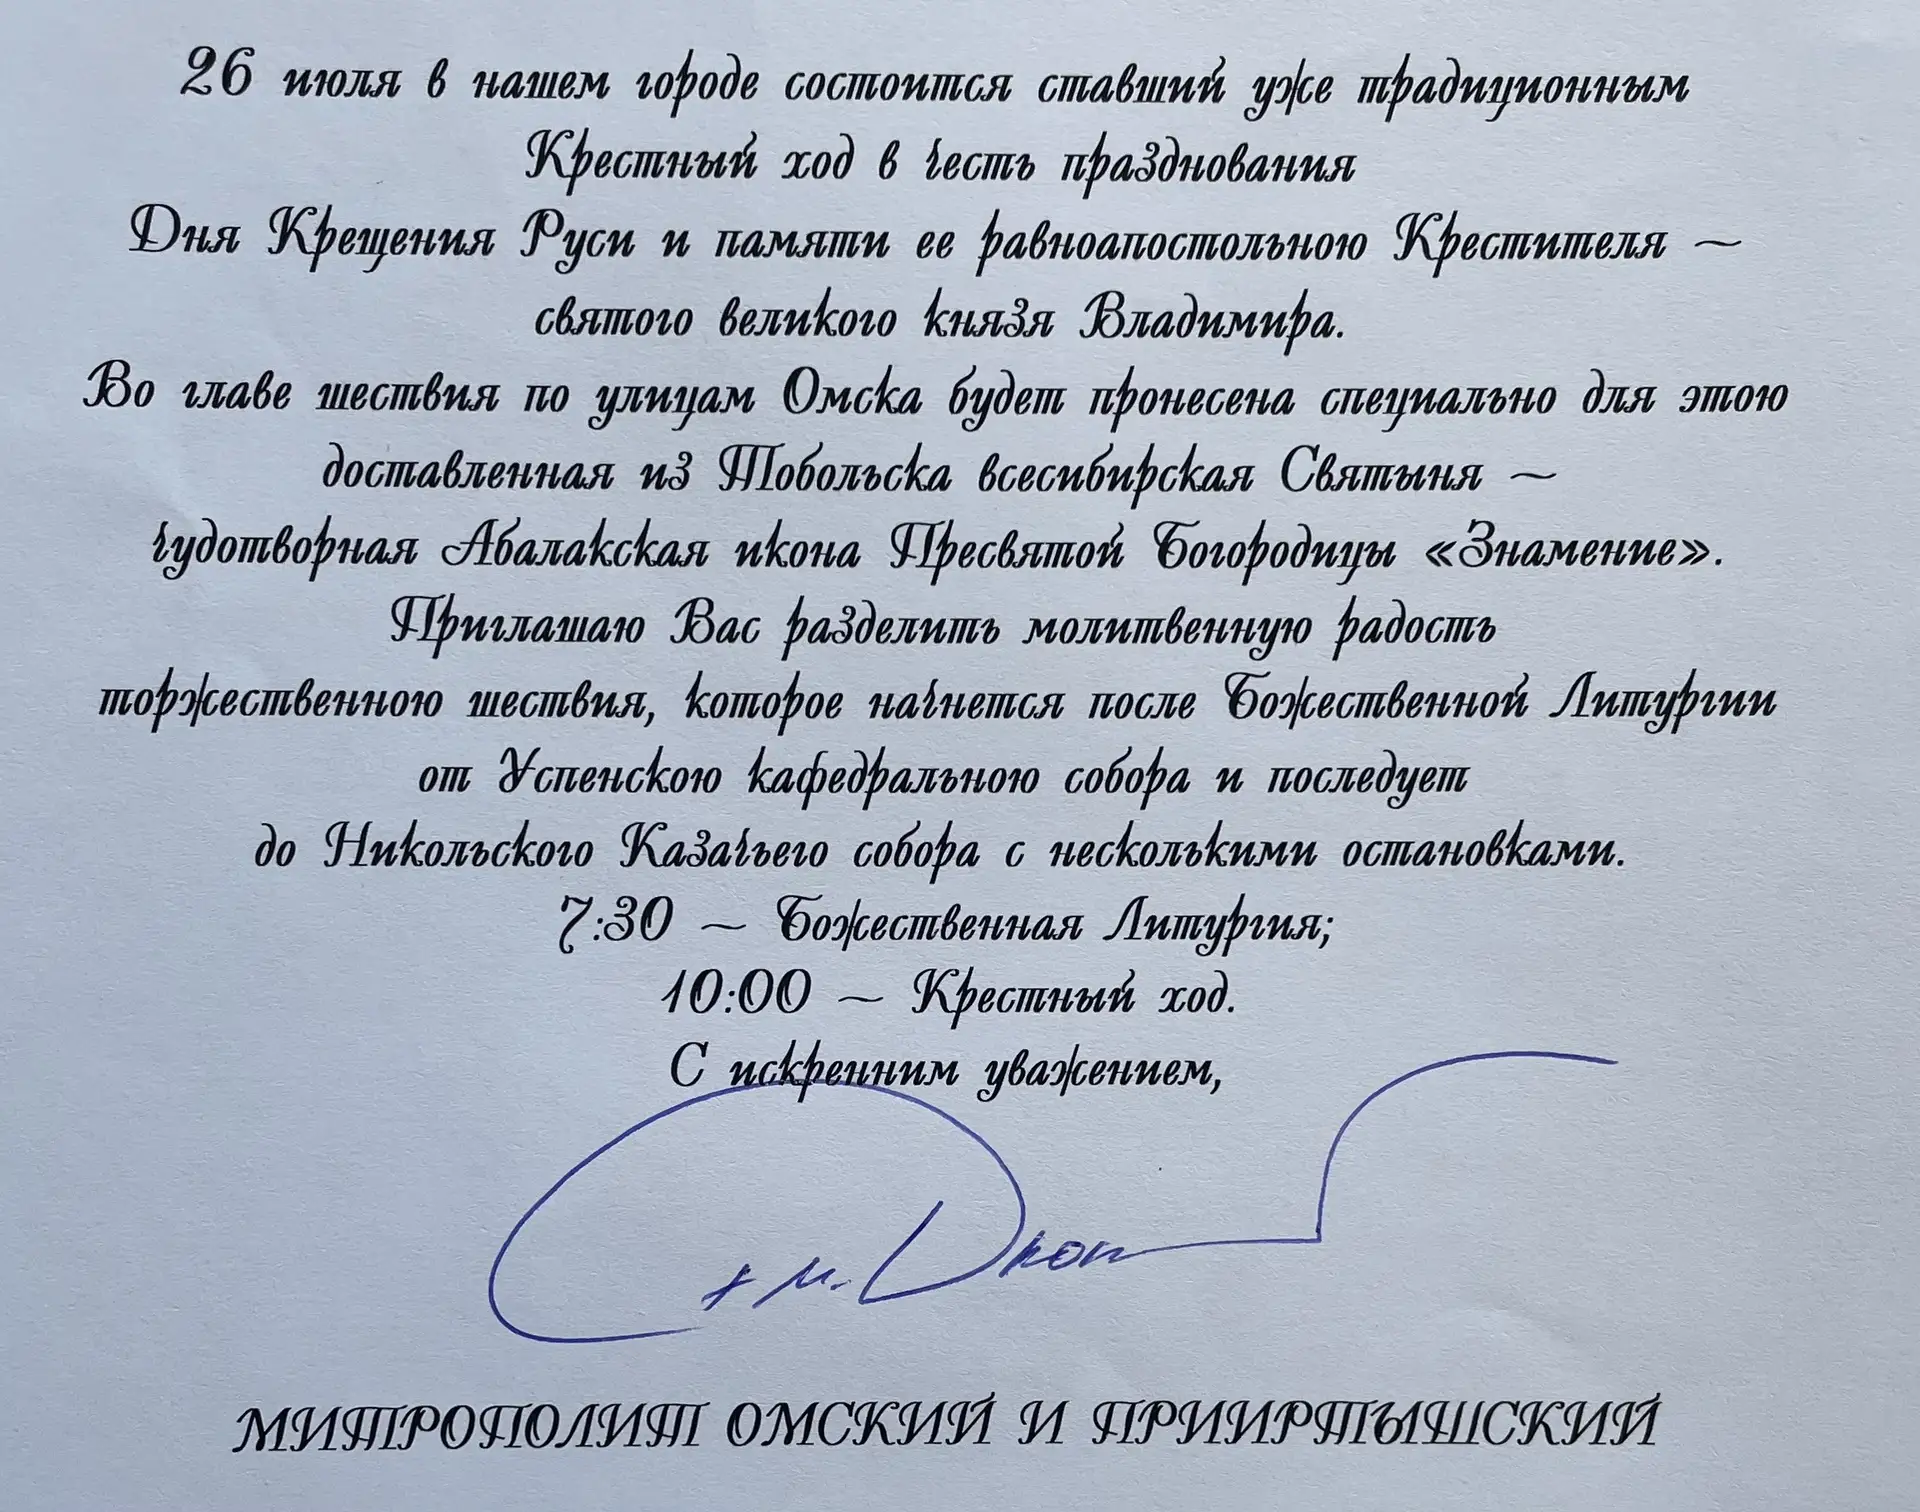 26 июля в нашем городе состоится ставший уже традиционным
Крестный ход в честь празднования
Дня Крещения Руси и памяти ее равноапостольного Крестителя –
святого великого князя Владимира.
Во главе шествия по улицам Омска будет пронесена специально для этого
доставленная из Тобольска всесибирская Святыня –
чудотворная Абалакская икона Пресвятой Богородицы «Знамение».
Приглашаю Вас разделить молитвенную радость
торжественного шествия, которое начнется после Божественной Литургии
от Успенского кафедрального собора и последует
до Никольского Казачьего собора с несколькими остановками.
7:30 – Божественная Литургия;
10:00 – Крестный ход.
С искренним уважением,
МИТРОПОЛИТ ОМСКИЙ И ПРИИРТЫШСКИЙ